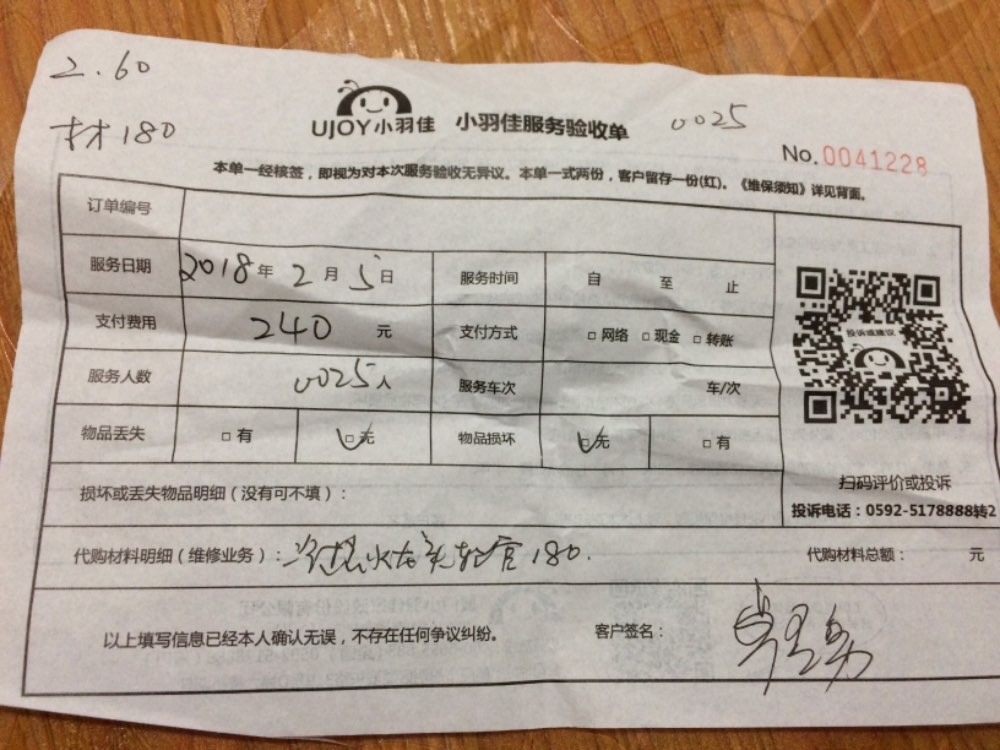 2.60
材180
UJOY小羽佳 小羽佳服务验收单 0025
No.0041228
本单一经核签，即视为对本次服务验收无异议。本单一式两份，客户留存一份(红)。《维保须知》详见背面。
订单编号
服务日期 2018年2月5日 服务时间 自 至 止
支付费用 240 元 支付方式 □网络 □现金 □转账
服务人数 0025人 服务车次 车/次
物品丢失 □有 □无 物品损坏 □无 □有
投诉或建议
扫码评价或投诉
投诉电话：0592-5178888转2
损坏或丢失物品明细（没有可不填）：
代购材料明细（维修业务）：冷热水龙头软管180. 代购材料总额： 元
以上填写信息已经本人确认无误，不存在任何争议纠纷。 客户签名：